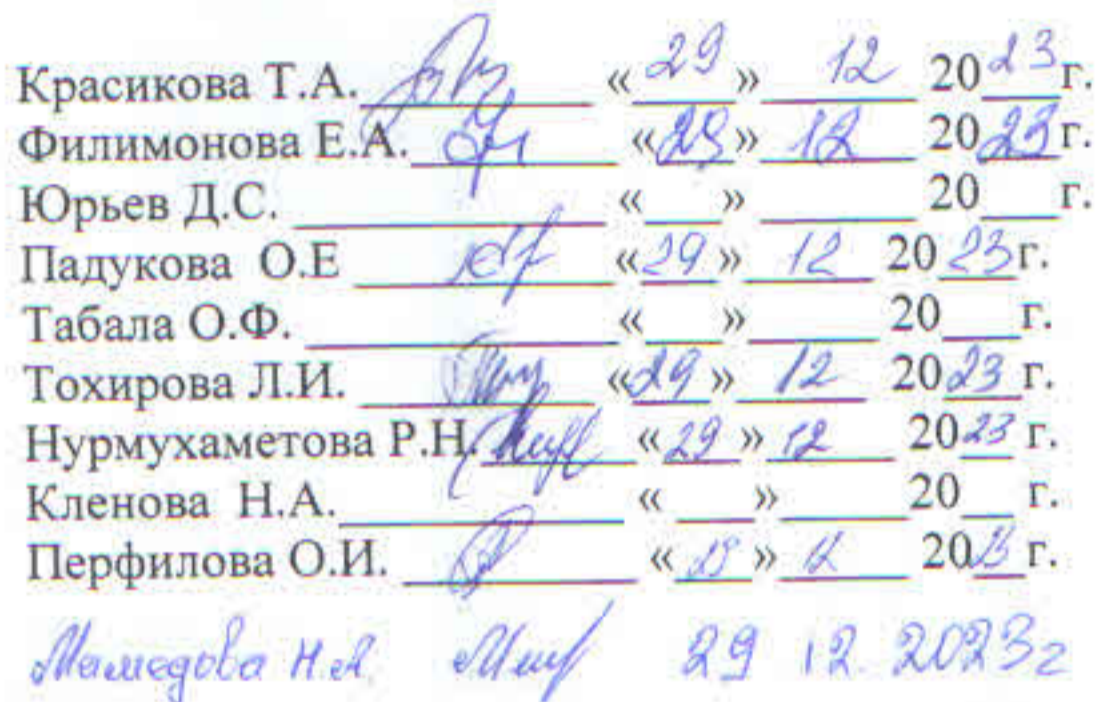 Красикова Т.А. «29» 12 2023г.
Филимонова Е.А. «29» 12 2023г.
Юрьев Д.С. «___» ______ 20___г.
Падукова О.Е «29» 12 2023г.
Табала О.Ф. «___» ______ 20___г.
Тохирова Л.И. «29» 12 2023 г.
Нурмухаметова Р.Н. «29» 12 2023 г.
Кленова Н.А. «___» ______ 20___г.
Перфилова О.И. «29» 12 2023 г.
Мамедова Н.А. 29 12. 2023г